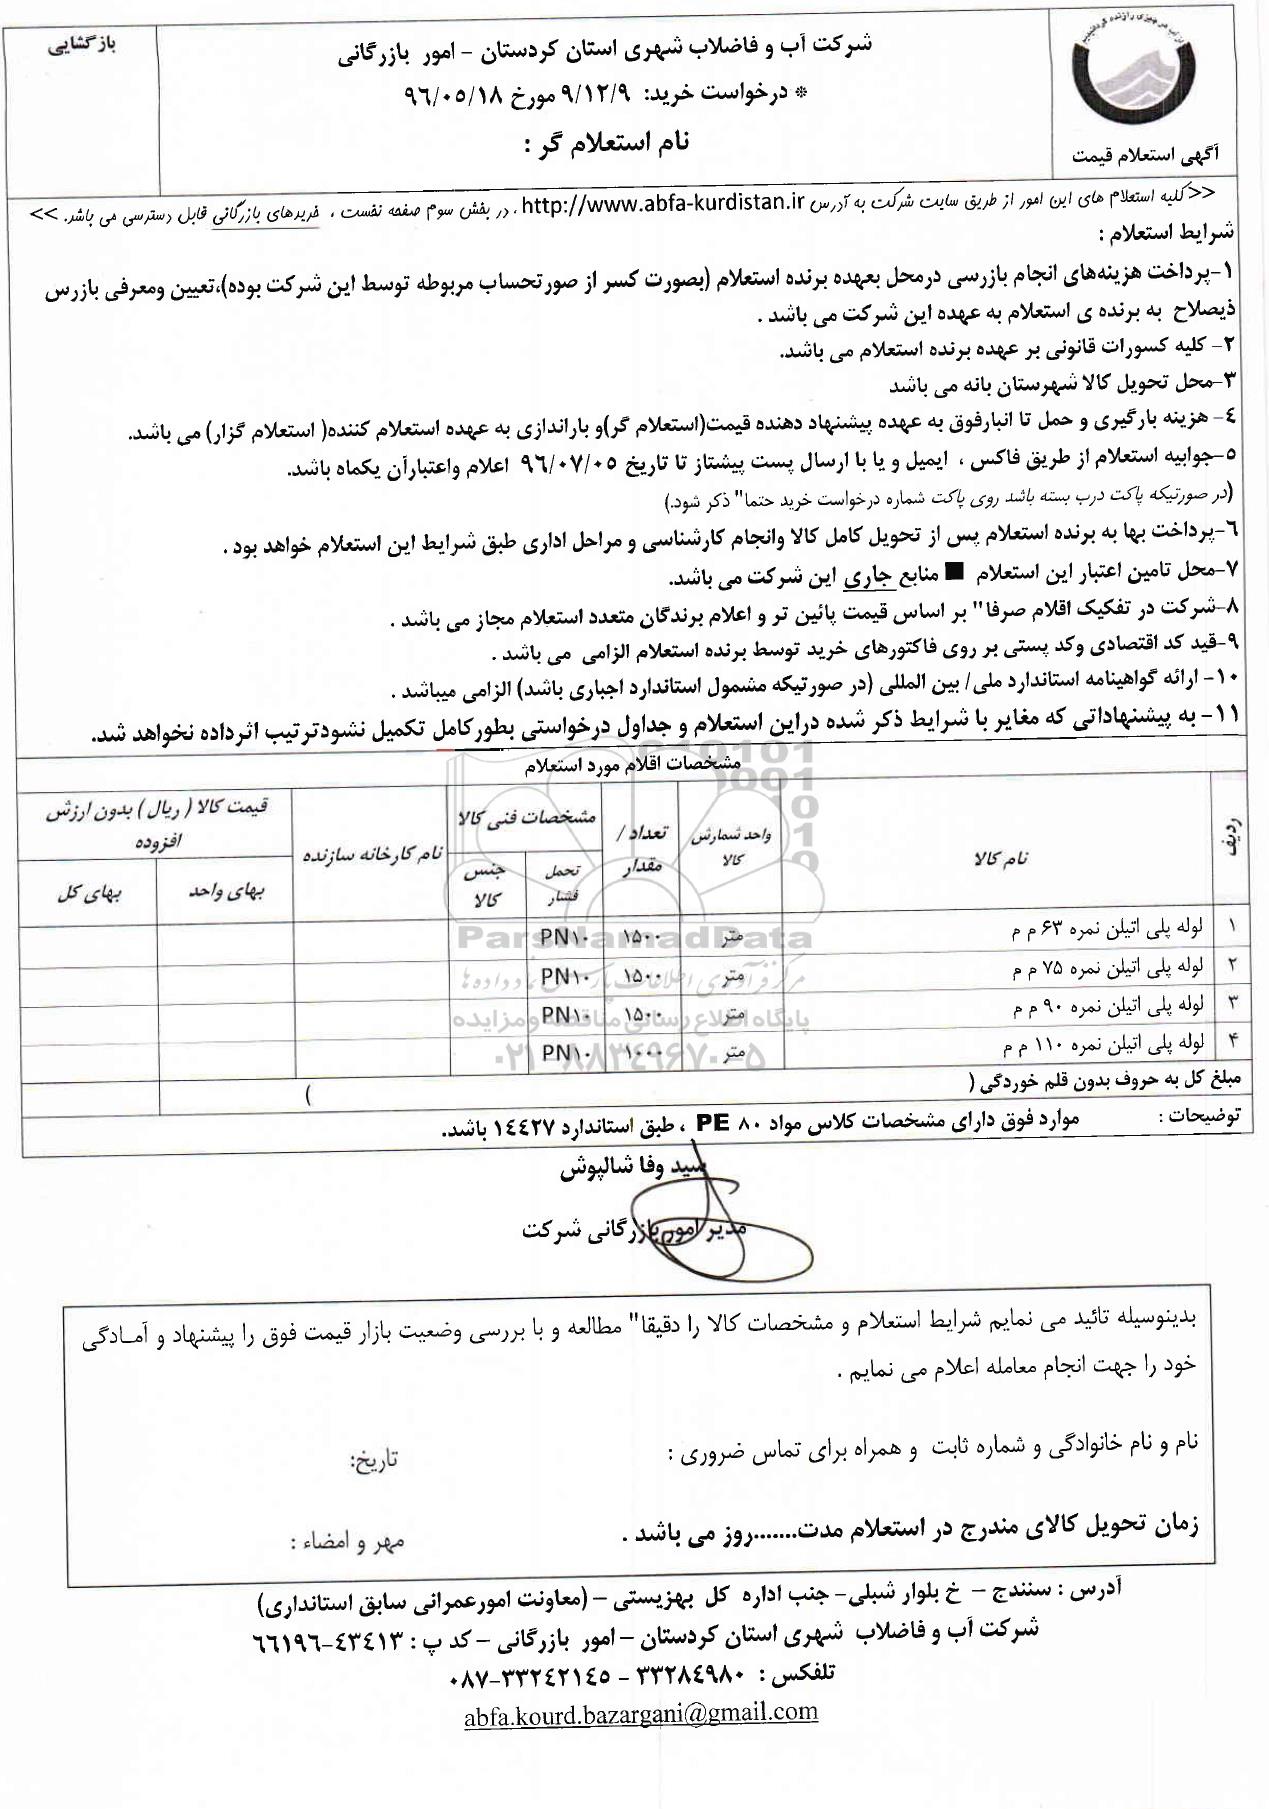 بازگشایی
شرکت آب و فاضلاب شهری استان کردستان – امور بازرگانی
* درخواست خرید: ۹/۱۲/۹ مورخ ۹۶/۰۵/۱۸
نام استعلام گر :
آگهی استعلام قیمت
<<کلیه استعلام های این امور از طریق سایت شرکت به آدرس http://www.abfa-kurdistan.ir ، در بخش سوم صفحه نخست ، خریدهای بازرگانی قابل دسترسی می باشد. >>
شرایط استعلام :
۱-پرداخت هزینه‌های انجام بازرسی درمحل بعهده برنده استعلام (بصورت کسر از صورتحساب مربوطه توسط این شرکت بوده)،تعیین ومعرفی بازرس
ذیصلاح به برنده ی استعلام به عهده این شرکت می باشد .
۲- کلیه کسورات قانونی بر عهده برنده استعلام می باشد.
۳-محل تحویل کالا شهرستان بانه می باشد
۴- هزینه بارگیری و حمل تا انبارفوق به عهده پیشنهاد دهنده قیمت(استعلام گر)و باراندازی به عهده استعلام کننده( استعلام گزار) می باشد.
۵-جوابیه استعلام از طریق فاکس ، ایمیل و یا با ارسال پست پیشتاز تا تاریخ ۹۶/۰۷/۰۵ اعلام واعتبارآن یکماه باشد.
(در صورتیکه پاکت درب بسته باشد روی پاکت شماره درخواست خرید حتما" ذکر شود.)
۶-پرداخت بها به برنده استعلام پس از تحویل کامل کالا وانجام کارشناسی و مراحل اداری طبق شرایط این استعلام خواهد بود .
۷-محل تامین اعتبار این استعلام ■ منابع جاری این شرکت می باشد.
۸-شرکت در تفکیک اقلام صرفا" بر اساس قیمت پائین تر و اعلام برندگان متعدد استعلام مجاز می باشد .
۹-قید کد اقتصادی وکد پستی بر روی فاکتورهای خرید توسط برنده استعلام الزامی می باشد .
۱۰- ارائه گواهینامه استاندارد ملی/ بین المللی (در صورتیکه مشمول استاندارد اجباری باشد) الزامی میباشد .
۱۱- به پیشنهاداتی که مغایر با شرایط ذکر شده دراین استعلام و جداول درخواستی بطورکامل تکمیل نشودترتیب اثرداده نخواهد شد.
مشخصات اقلام مورد استعلام
ردیف نام کالا واحد شمارش کالا تعداد / مقدار مشخصات فنی کالا نام کارخانه سازنده قیمت کالا ( ریال ) بدون ارزش افزوده
تحمل فشار جنس کالا بهای واحد بهای کل
۱ لوله پلی اتیلن نمره ۶۳ م م متر ۱۵۰۰ PN۱۰
۲ لوله پلی اتیلن نمره ۷۵ م م متر ۱۵۰۰ PN۱۰
۳ لوله پلی اتیلن نمره ۹۰ م م متر ۱۵۰۰ PN۱۰
۴ لوله پلی اتیلن نمره ۱۱۰ م م متر ۱۰۰۰ PN۱۰
ParsNamadData
مرکز فرآوری اطلاعات پارس نماد داده‌ها
پایگاه اطلاع رسانی مناقصه و مزایده
۰۲۱-۸۸۳۴۹۶۷۰-۵
مبلغ کل به حروف بدون قلم خوردگی ( )
توضیحات : موارد فوق دارای مشخصات کلاس مواد PE ۸۰ ، طبق استاندارد ۱۴۴۲۷ باشد.
سید وفا شالپوش
مدیر امور بازرگانی شرکت
بدینوسیله تائید می نمایم شرایط استعلام و مشخصات کالا را دقیقا" مطالعه و با بررسی وضعیت بازار قیمت فوق را پیشنهاد و آمادگی
خود را جهت انجام معامله اعلام می نمایم .
نام و نام خانوادگی و شماره ثابت و همراه برای تماس ضروری :
تاریخ:
زمان تحویل کالای مندرج در استعلام مدت.......روز می باشد .
مهر و امضاء :
آدرس : سنندج – خ بلوار شبلی- جنب اداره کل بهزیستی – (معاونت امورعمرانی سابق استانداری)
شرکت آب و فاضلاب شهری استان کردستان – امور بازرگانی – کد پ : ۴۳۴۱۳-۶۶۱۹۶
تلفکس : ۳۳۲۸۴۹۸۰ - ۰۸۷-۳۳۲۴۲۱۴۵
abfa.kourd.bazargani@gmail.com